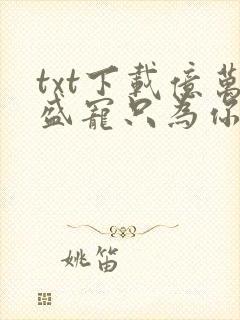 txt下載億萬
盛寵只為你
姚笛